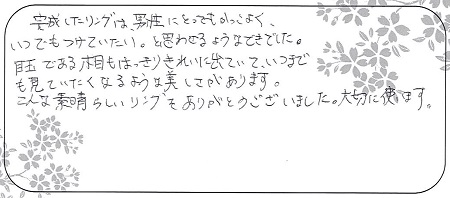 完成したリングは、男性にとってもかっこよく、
いつでもつけていたい。と思わせるようなできでした。
目玉である木目もはっきりきれいに出ていて、いつまで
も見ていたくなるような美しさがあります。
こんな素晴らしいリングをありがとうございました。大切に使います。